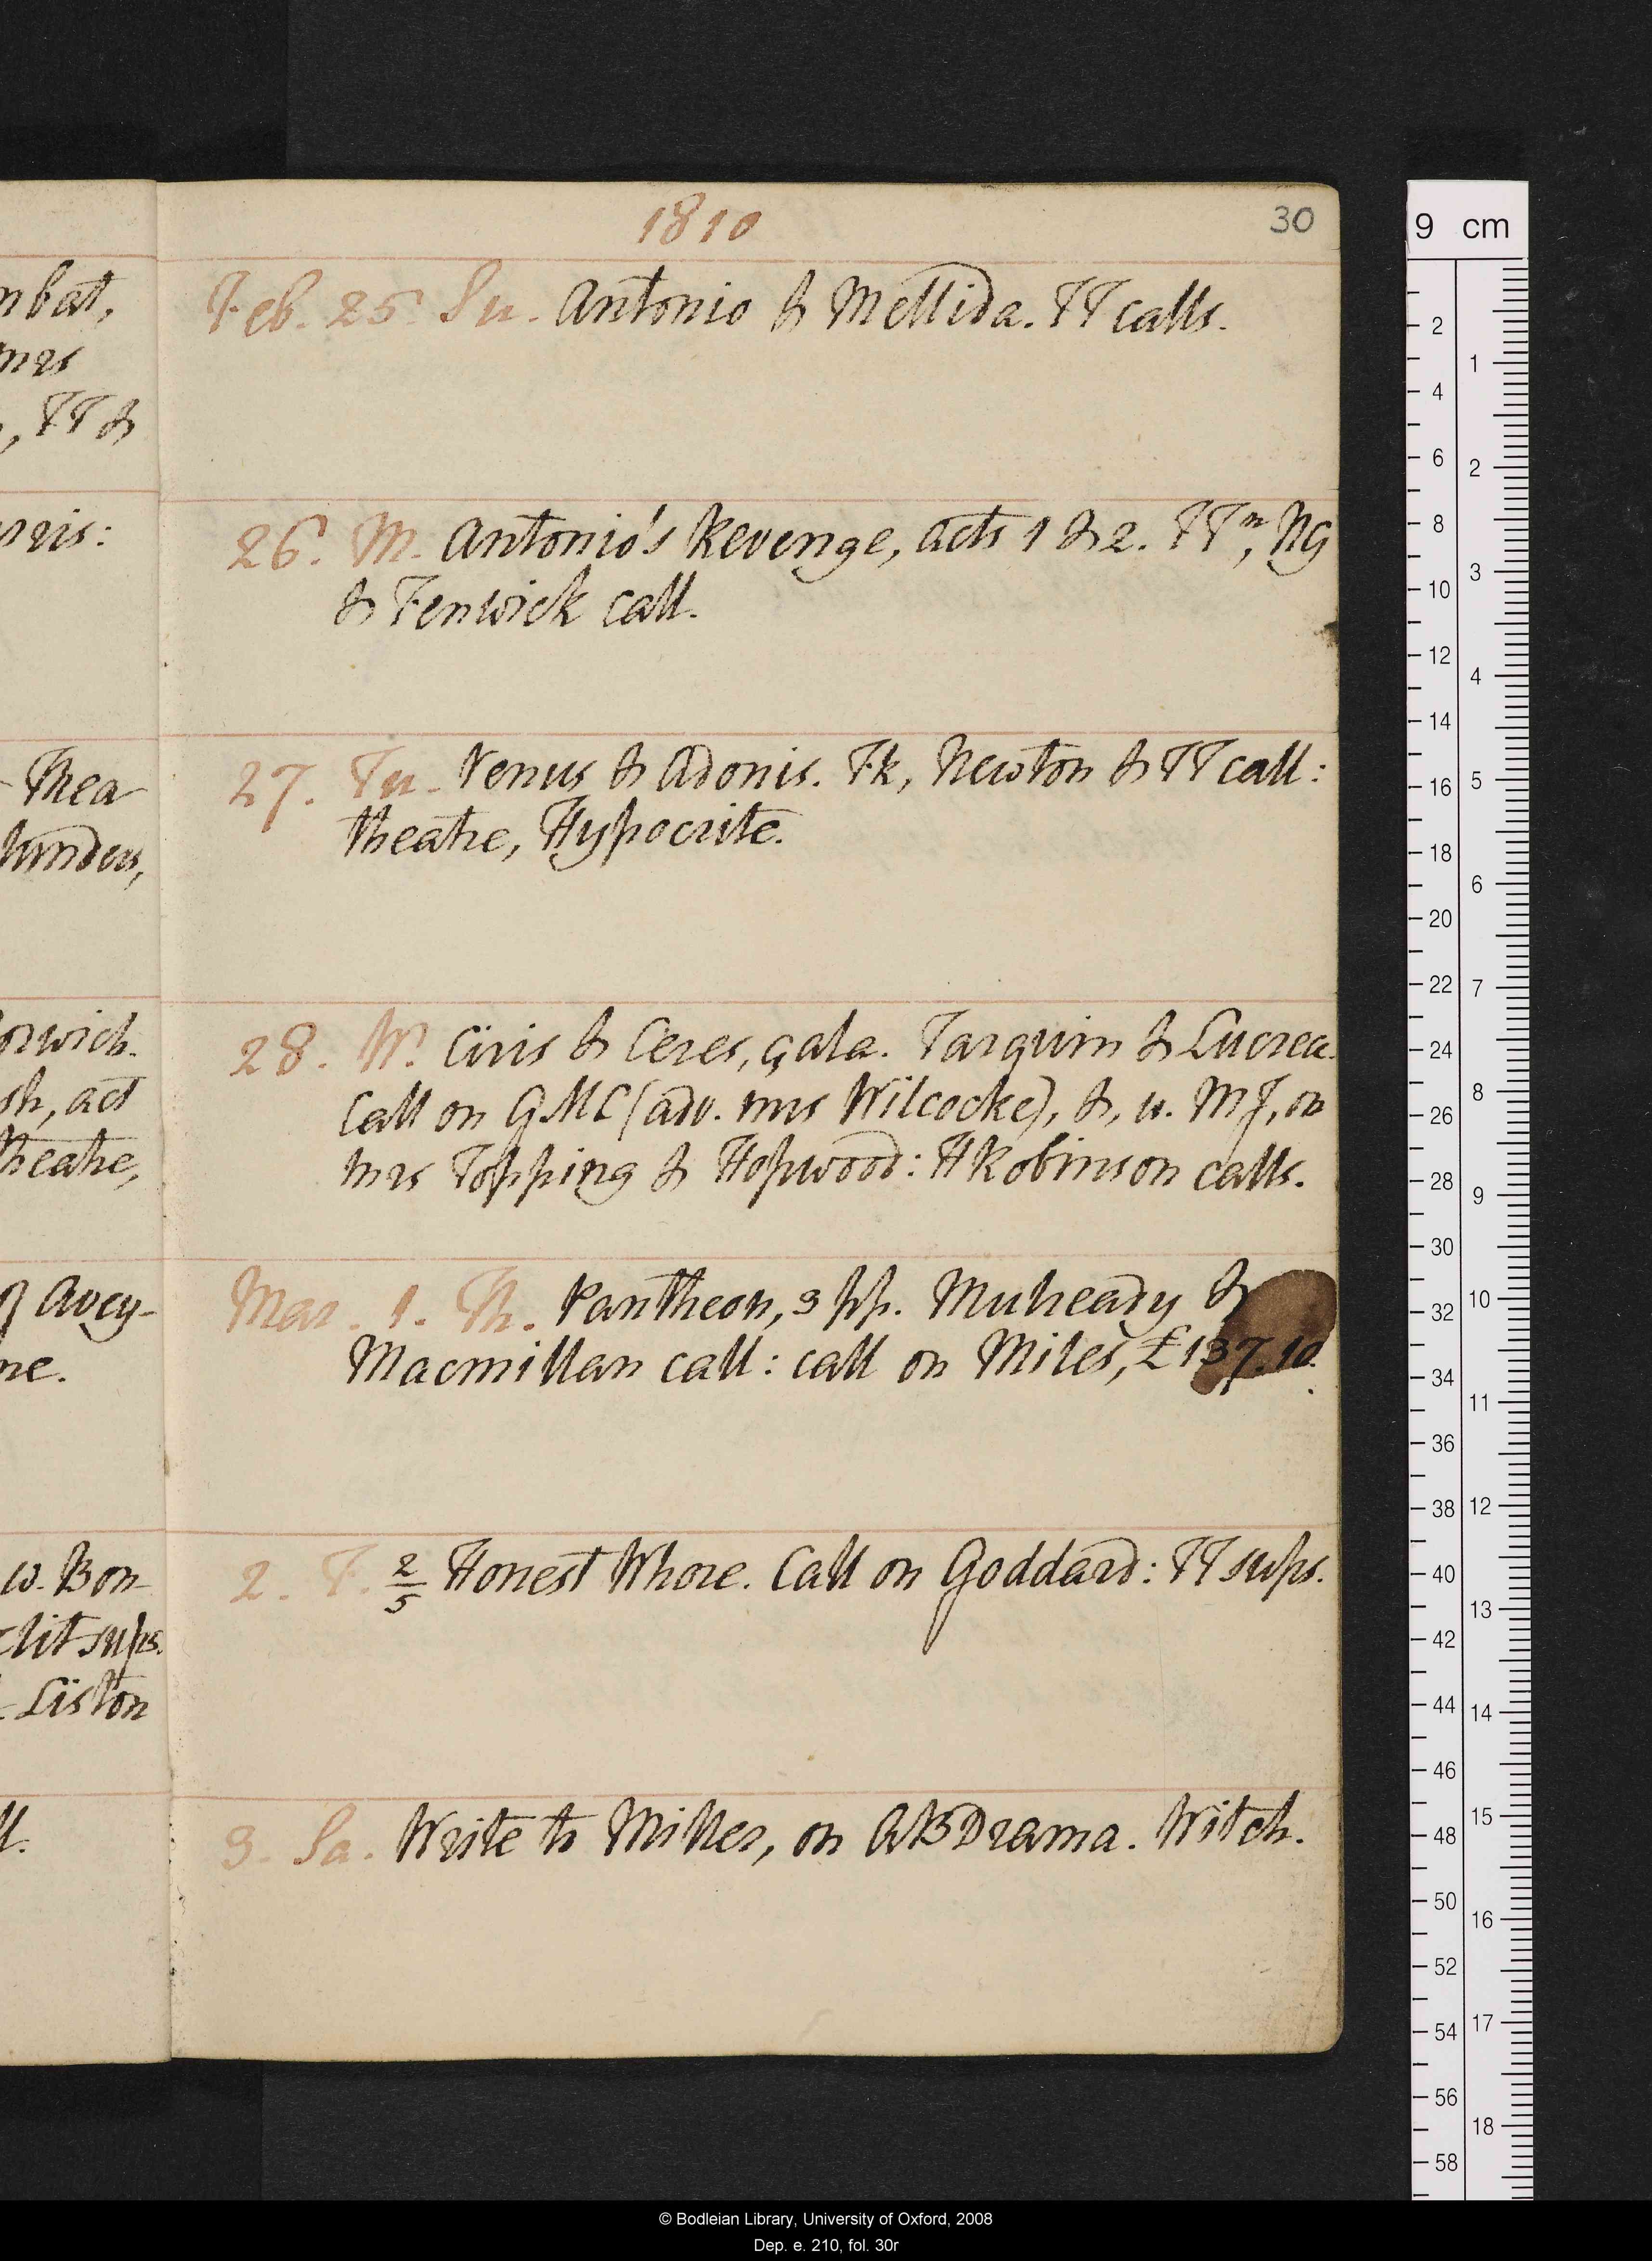 1810
30
Feb. 25. Su. Antonio & Mellida. TT calls.
26. M. Antonio's Revenge, acts 1 & 2. TTr, NG
& Fenwick call.
27. Tu. Venus & Adonis. Fk, Newton & TT call:
theatre, Hypocrite.
28. W. Ciris & Ceres, çala. Tarquin & Lucrece.
Call on GMC (adv. mrs Wilcocke), &, w. MJ, on
mrs Topping & Hopwood: HRobinson calls.
Mar. 1. Th. Pantheon, 3 pp. Mulready &
Macmillan call: call on Miles, £137.10.
2. F. 2/5 Honest Whore. Call on Goddard: TT sups.
3. Sa. Write to Miller, on ABDrama. Witch.
mbat,
mrs
, TT &
rris:
- Thea-
lunders,
orwich.
sh, act
theatre,
Avey-
ne.
w. Bon-
zlit sups.
Liston
ll.
9 cm
2
4
6
8
10
12
14
16
18
20
22
24
26
28
30
32
34
36
38
40
42
44
46
48
50
52
54
56
58
1
2
3
4
5
6
7
8
9
10
11
12
13
14
15
16
17
18
© Bodleian Library, University of Oxford, 2008
Dep. e. 210, fol. 30r